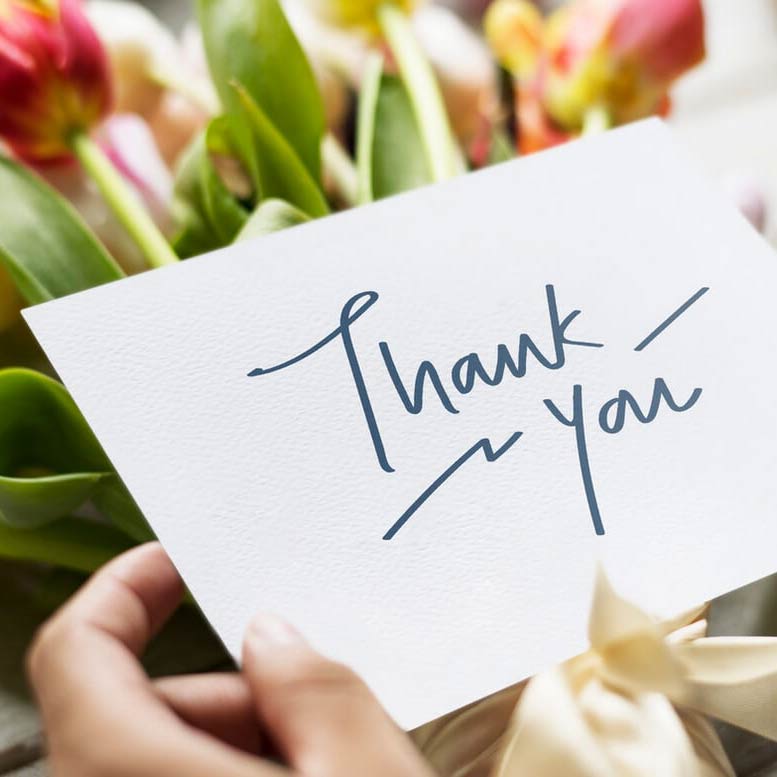 Thank
you